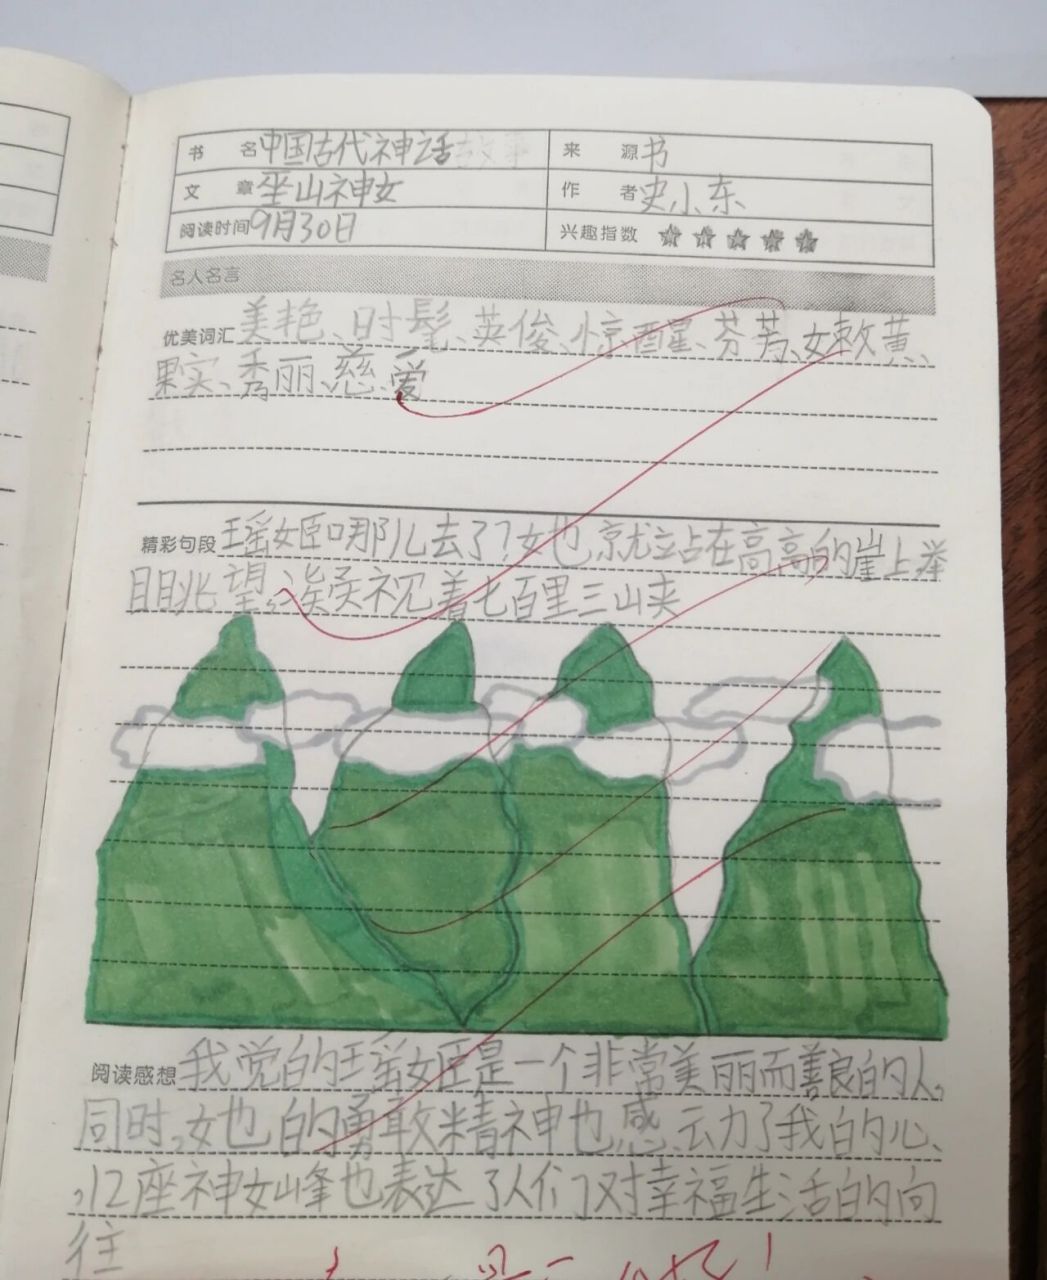 书 名 中国古代神话故事 来 源 书
文 章 巫山神女 作 者 史小东
阅读时间 9月30日 兴趣指数
名人名言
优美词汇 美艳、时髦、英俊、惊醒、芬芳、嫩黄、
果实、秀丽、慈爱
精彩句段 瑶姬哪儿去了?她就站在高高的崖上举
目眺望,凝视着七百里三山夹
阅读感想 我觉的瑶姬是一个非常美丽而善良的人,
同时,她的勇敢精神也感动了我的心、
,12座神女峰也表达了人们对幸福生活的向
往